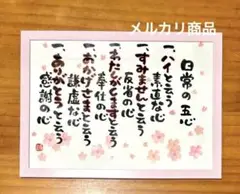 メルカリ商品
日常の五心
一、ハイと云う
素直な心
一、すみませんと云う
反省の心
一、わたしがしますと云う
奉仕の心
一、おかげさまと云う
謙虚な心
一、ありがとうと云う
感謝の心